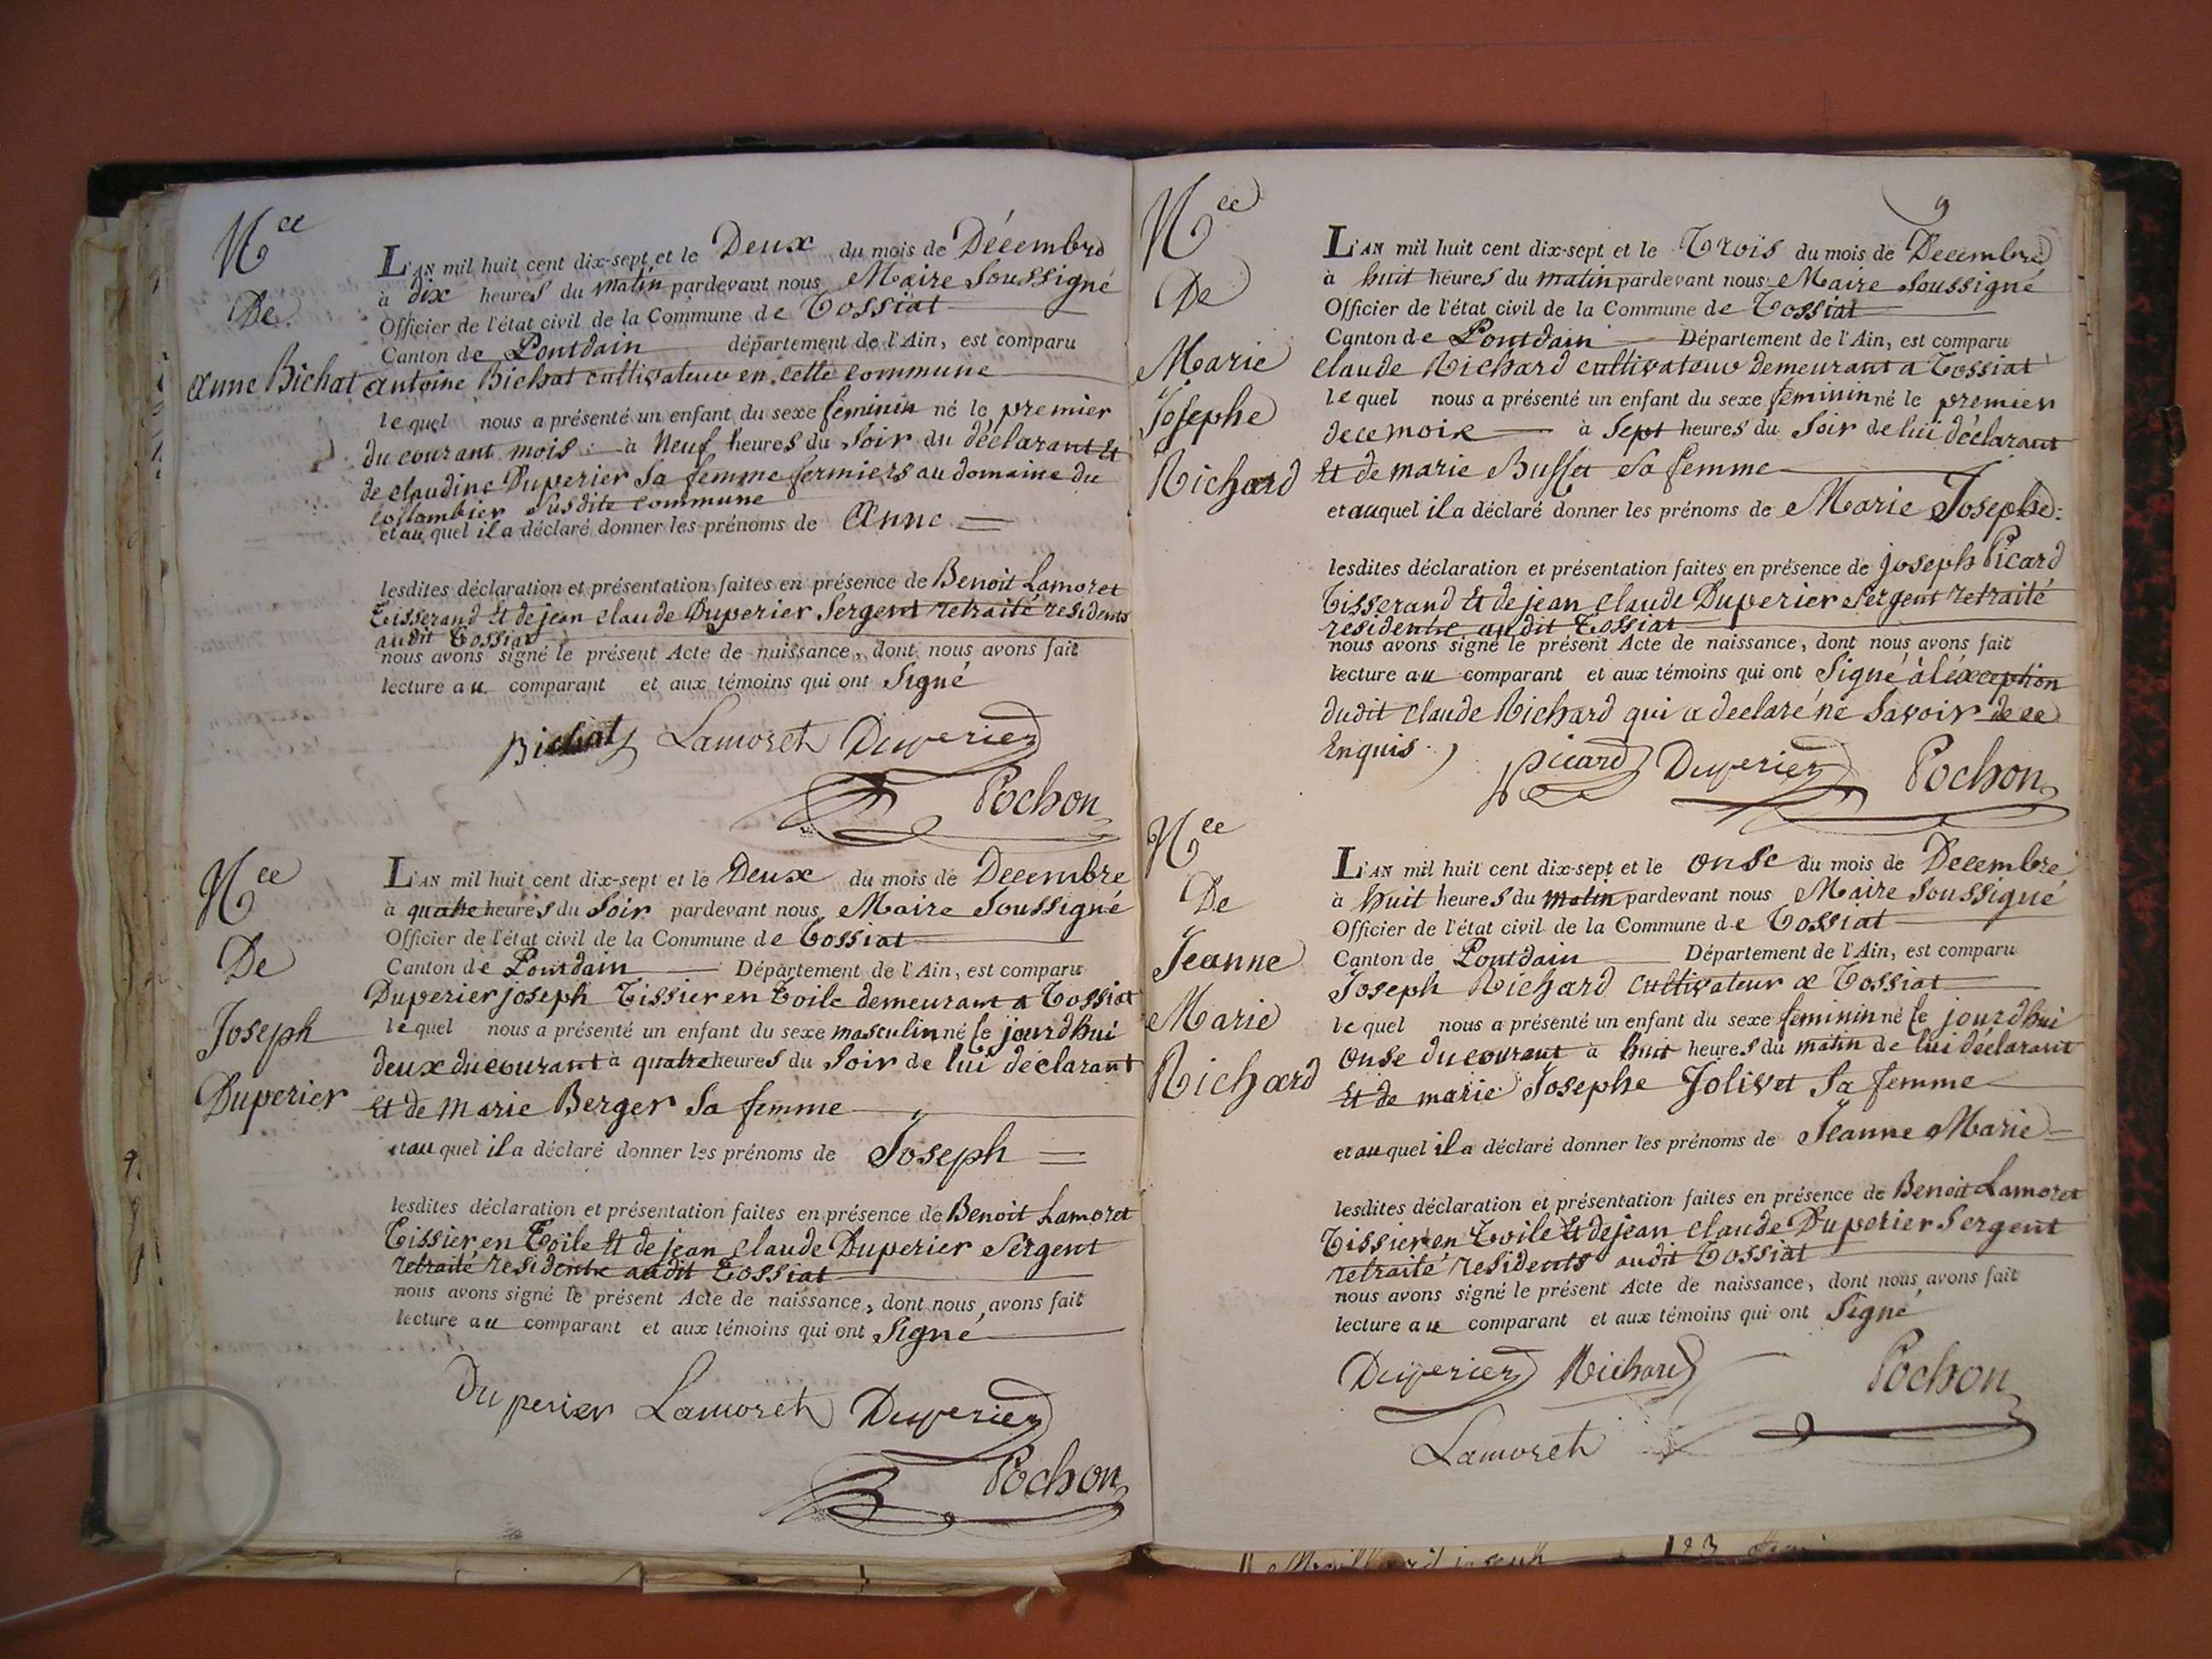 N.ce
De
Anne Bichat
L'AN mil huit cent dix-sept et le Deux du mois de Décembre
à dix heures du matin pardevant nous Maire Soussigné
Officier de l'état civil de la Commune de Tossiat
Canton de Pontdain département de l'Ain, est comparu
antoine Bichat cultivateur en cette commune
lequel nous a présenté un enfant du sexe feminin né le premier
du courant mois à Neuf heures du Soir du déclarant Et
de claudine Duperier Sa femme fermiers au domaine du
collombier Susdite commune
et au quel il a déclaré donner les prénoms de Anne
lesdites déclaration et présentation faites en présence de Benoit Lamoret
Tisserand Et de jean claude Duperier Sergent retraité residents
audit Tossiat
nous avons signé le présent Acte de naissance, dont nous avons fait
lecture au comparant et aux témoins qui ont Signé
Bichat Lamoret Duperier
Pochon
N.ce
De
Joseph
Duperier
L'AN mil huit cent dix-sept et le Deux du mois de Decembre
à quatre heures du Soir pardevant nous Maire Soussigné
Officier de l'état civil de la Commune de Tossiat
Canton de Pontdain Département de l'Ain, est comparu
Duperier joseph Tissier en Toile demeurant a Tossiat
lequel nous a présenté un enfant du sexe masculin né le jourdhui
deux du courant à quatre heures du Soir de lui déclarant
Et de Marie Berger Sa femme
et au quel il a déclaré donner les prénoms de Joseph
lesdites déclaration et présentation faites en présence de Benoit Lamoret
Tissier en Toile Et de jean claude Duperier Sergent
retraité residents audit Tossiat
nous avons signé le présent Acte de naissance, dont nous avons fait
lecture au comparant et aux témoins qui ont Signé
Duperier Lamoret Duperier
Pochon
9
N.ce
De
Marie
Josephe
Richard
L'AN mil huit cent dix-sept et le Trois du mois de Decembre
à huit heures du matin pardevant nous Maire Soussigné
Officier de l'état civil de la Commune de Tossiat
Canton de Pontdain Département de l'Ain, est comparu
claude Richard cultivateur demeurant a Tossiat
lequel nous a présenté un enfant du sexe feminin né le premier
de ce mois à Sept heures du Soir de lui déclarant
Et de marie Buffet Sa femme
et auquel il a déclaré donner les prénoms de Marie Josephe
lesdites déclaration et présentation faites en présence de joseph Picard
Tisserand Et de jean claude Duperier Sergent retraité
residents audit Tossiat
nous avons signé le présent Acte de naissance, dont nous avons fait
lecture au comparant et aux témoins qui ont Signé à l'éxception
dudit claude Richard qui a declaré ne Savoir de ce
Enquis.
picard Duperier Pochon
N.ce
De
Jeanne
Marie
Richard
L'AN mil huit cent dix-sept et le onse du mois de Decembre
à huit heures du matin pardevant nous Maire Soussigné
Officier de l'état civil de la Commune de Tossiat
Canton de Pontdain Département de l'Ain, est comparu
Joseph Richard Cultivateur a Tossiat
lequel nous a présenté un enfant du sexe feminin né le jourdhui
onse du courant à huit heures du matin de lui déclarant
Et de marie Josephe Jolivet Sa femme
et au quel il a déclaré donner les prénoms de Jeanne Marie
lesdites déclaration et présentation faites en présence de Benoit Lamoret
Tissier en Toile Et de jean claude Duperier Sergent
retraité residents audit Tossiat
nous avons signé le présent Acte de naissance, dont nous avons fait
lecture au comparant et aux témoins qui ont Signé
Duperier Richard Pochon
Lamoret